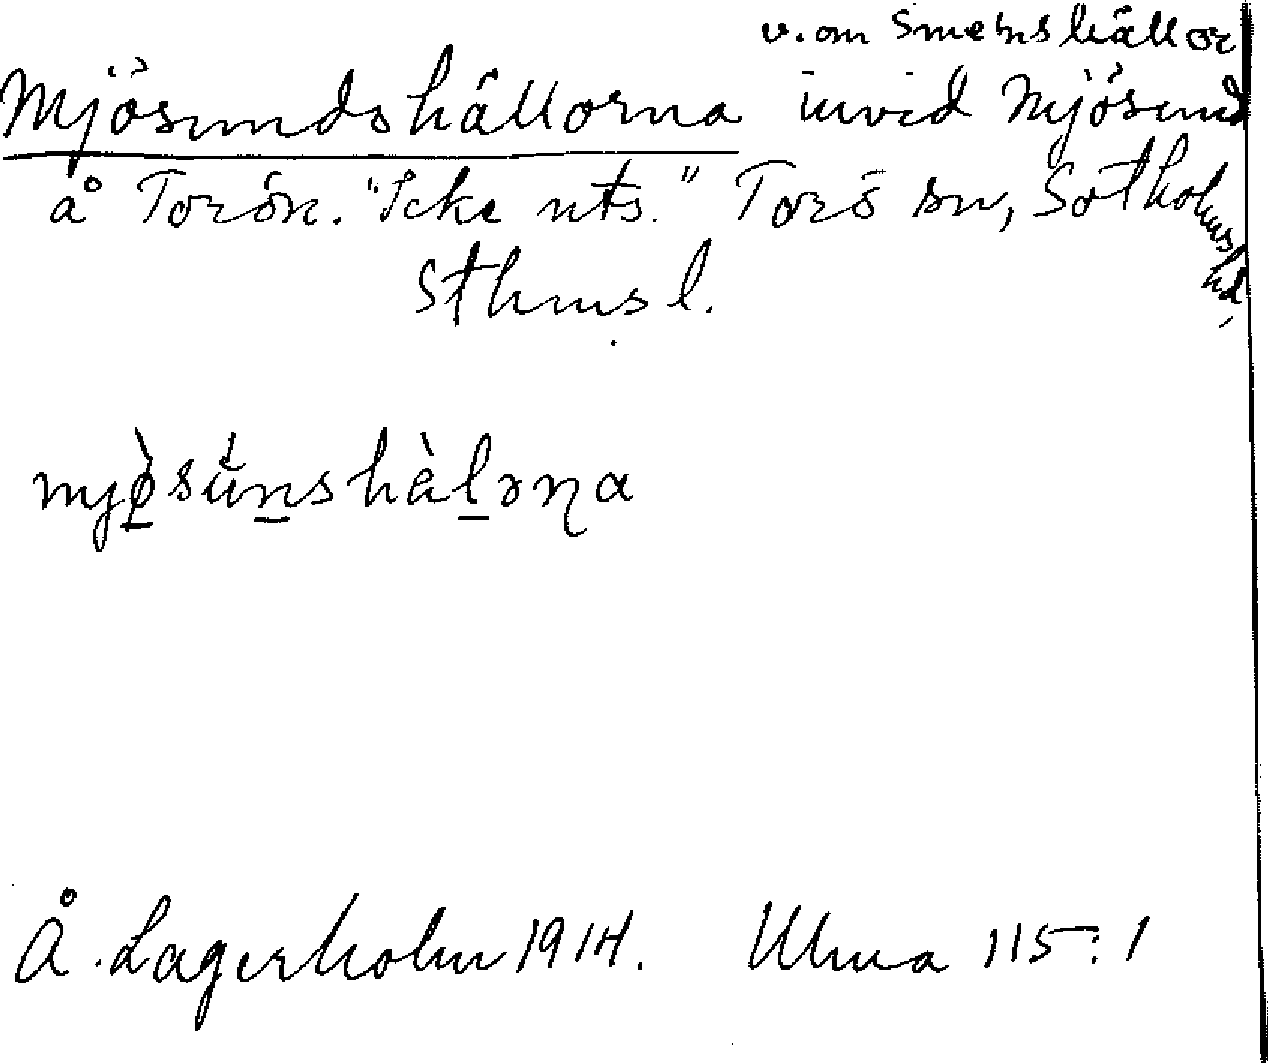 v. om Smenshällor
Mjösundshällorna invid Mjösund
å Torön. "Icke uts." Torö sn, Sotholms hd,
Sthms l.
mjø̀sŭnshàlərna
Å. Lagerholm 1914. Ulma 115:1